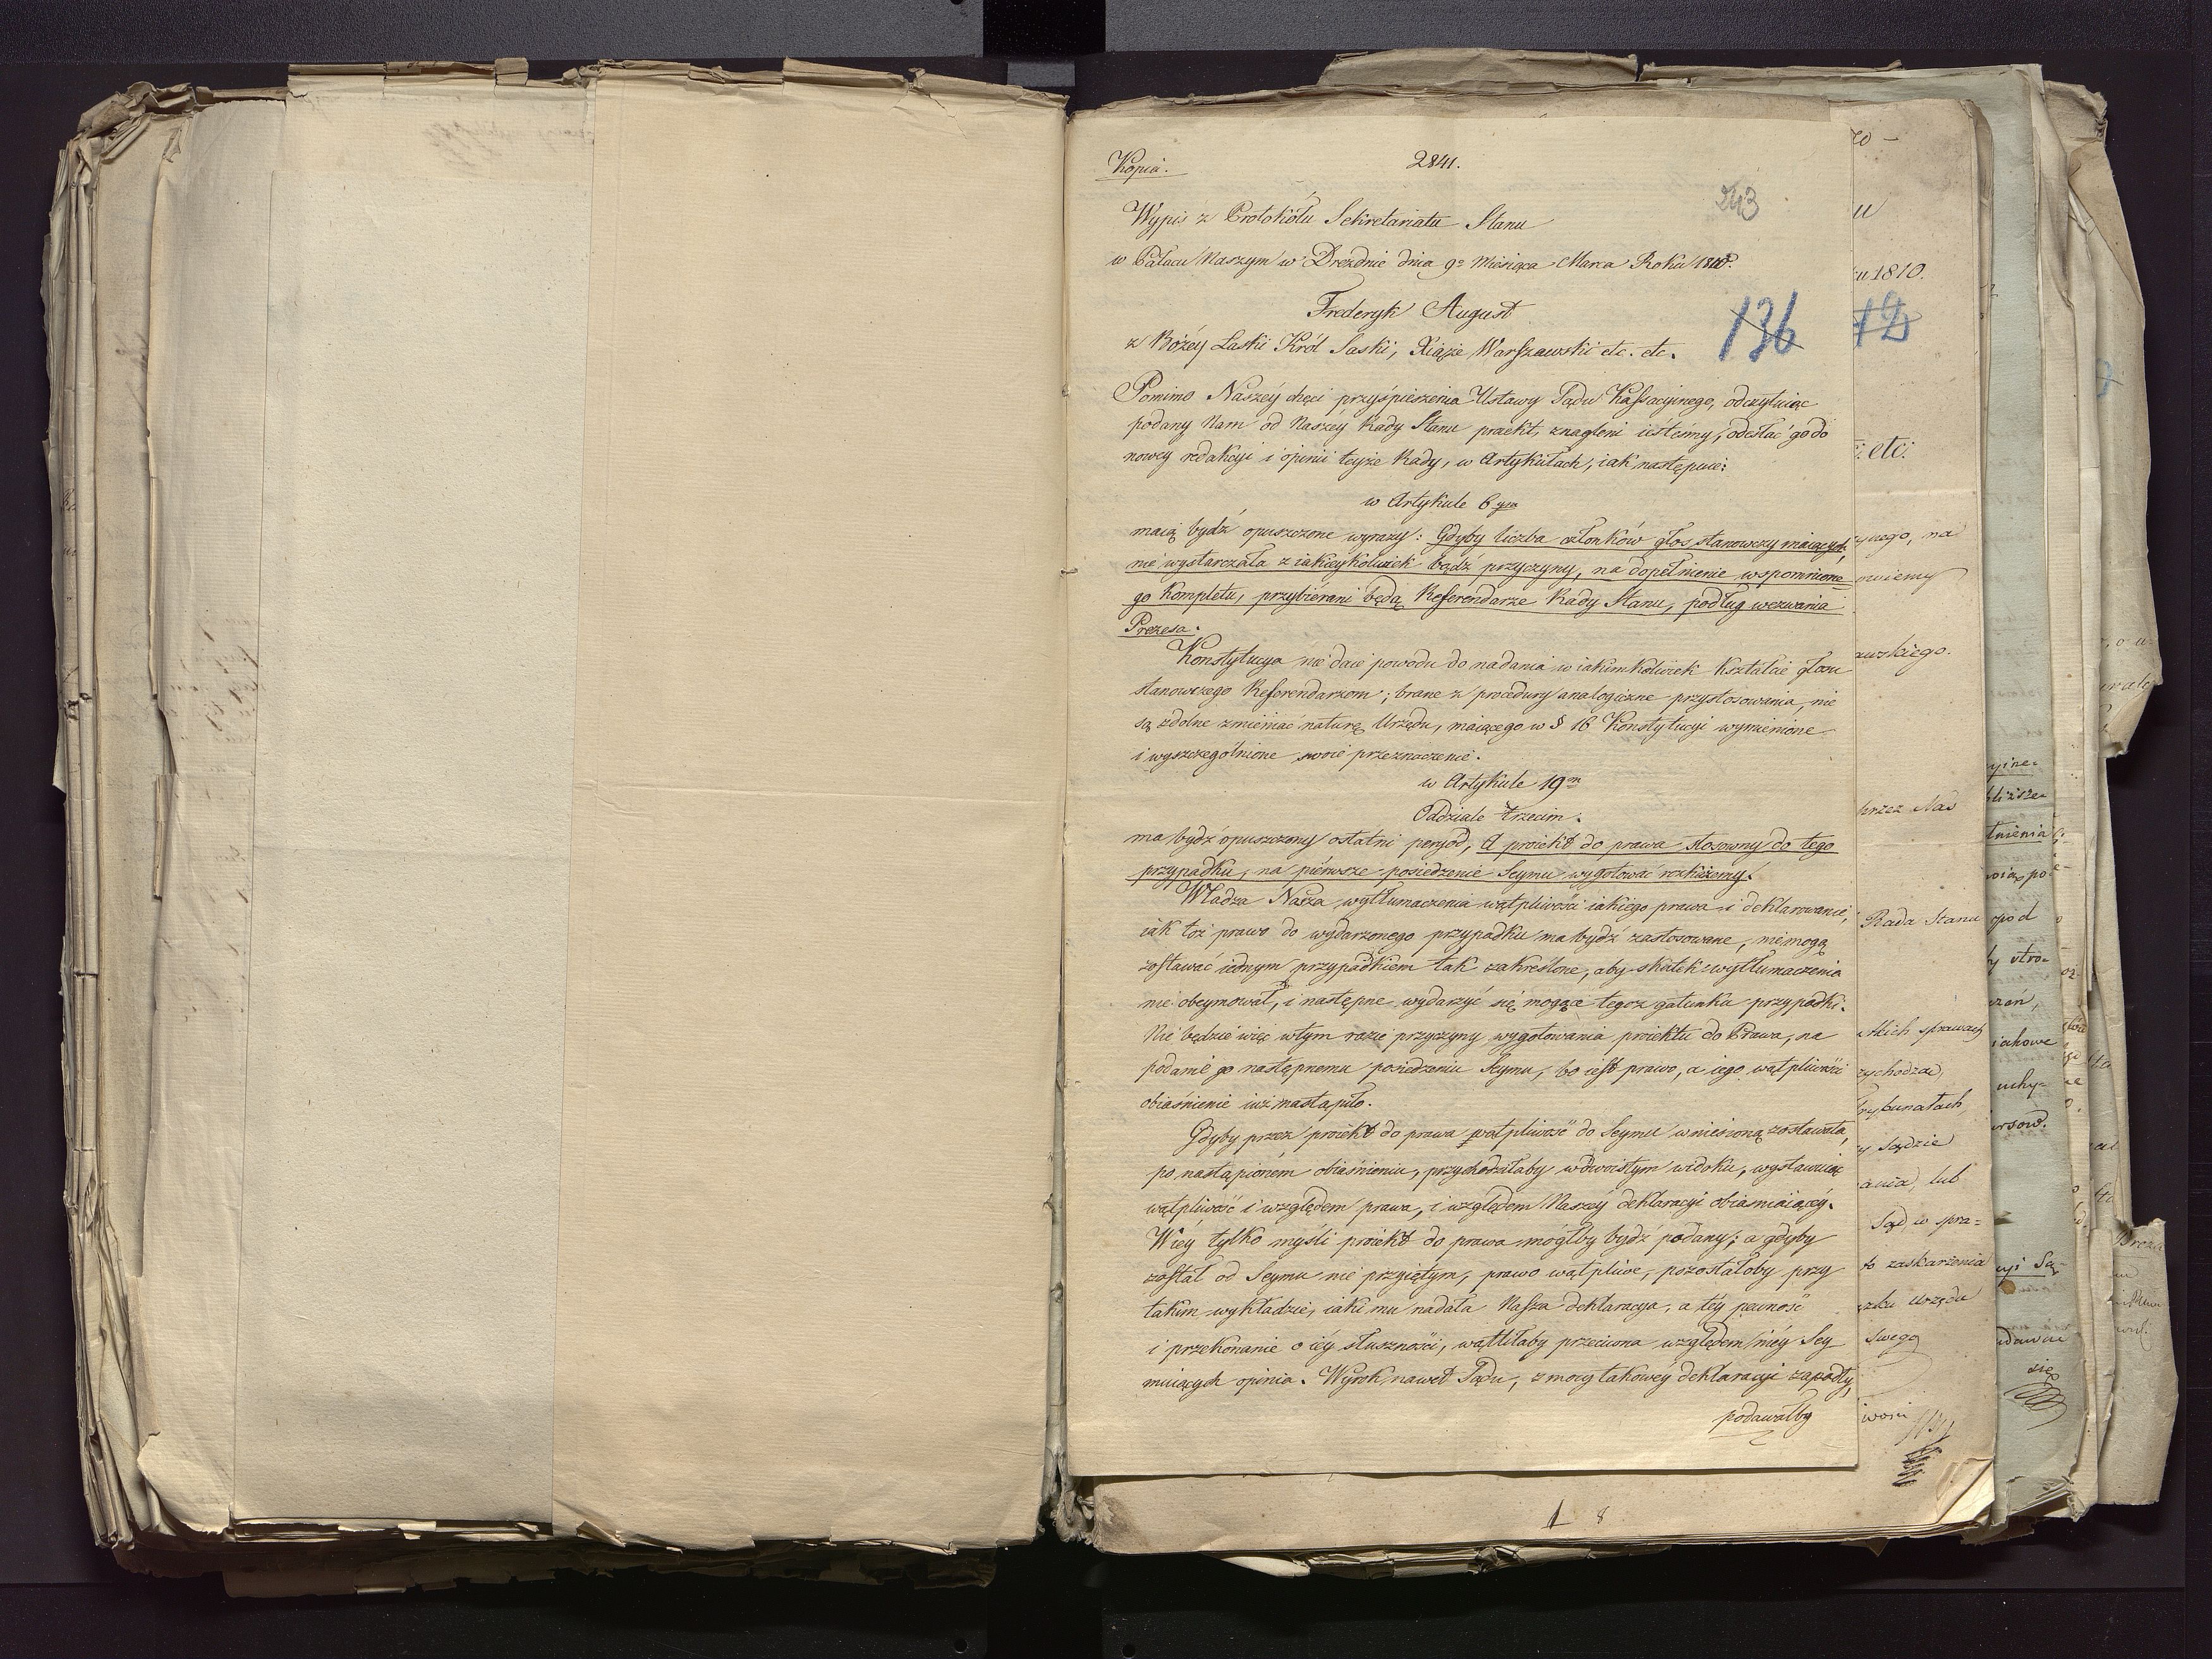 Kopia.
2841.
243
Wypis z Protokółu Sekretariatu Stanu
w Pałacu Naszym w Dreźdnie dnia 9º Miesiąca Marca Roku 1810.
Frederyk August
136
z Bożéy Łaski Król Saski, Xiąże Warszawski etc. etc.
Pomimo Naszéy chęci przyśpieszenia Ustawy Sądu Kassacyinego, odczytuiąc
podany Nam od Naszéy Rady Stanu proiekt, znagleni iesteśmy, odesłać go do
nowey redakcyi i opinii teyże Rady, w Artykułach, iak następuie:
w Artykule 6ym
maią bydź opuszczone wyrazy: Gdyby liczba członków głos stanowczy maiących,
nie wystarczała z iakieykolwiek bądź przyczyny, na dopełnienie wspomnione=
go kompletu, przybiérani będą Referendarze Rady Stanu, podług wezwania
Prezesa.
Konstytucya nie daie powodu do nadania w iakimkolwiek kształcie głosu
stanowczego Referendarzom; brane z procedury analogiczne przystosowania, nie
są zdolne zmieniać naturę Urzędu, maiącego w § 16 Konstytucyi wymienione
i wyszczególnione swoie przeznaczenie.
w Artykule 19m
Oddziale trzecim.
ma bydź opuszczony ostatni peryod, A proiekt do prawa stosowny do tego
przypadku, na piérwsze posiedzenie Seymu wygotować rozkażemy.
Władza Nasza wytłumaczenia wątpliwości iakiégo prawa i deklarowanie,
iak toż prawo do wydarzonego przypadku ma bydź zastosowane, nie mogą
zostawać iednym przypadkiem tak zakreślone, aby skutek wytłumaczenia
nie obeymował, i następne wydarzyć się mogące tegoż gatunku przypadki.
Nie będzie więc w tym razie przyczyny wygotowania proiektu do Prawa, na
podanie go następnemu posiedzeniu Seymu, bo iest prawo, a iego wątpliwości
obiaśnienie iuż nastąpiło.
Gdyby przez proiekt do prawa wątpliwość do Seymu wniesioną zostawała,
po nastąpioném obiaśnieniu, przychodziłaby w dwoistym widoku, wystawuiąc
wątpliwość i względem prawa, i względem Naszéy deklaracyi obiasniaiącéy.
W téy tylko myśli proiekt do prawa mógłby bydź podany; a gdyby
został od Seymu nie przyiętym, prawo wątpliwe, pozostałoby przy
takim wykładzie, iaki mu nadała Nasza deklaracya, a téy pewność
i przekonanie o iéy słuszności, wątliłaby przeciwna względem niéy Sey
muiących opinia. Wyrok nawet Sądu, z mocy takowéy deklaracyi zapadły,
podawałby
u 1810.
etc.
przez Nas
Rada Stanu
sprawach
Sądzie
lub
Sąd w spra=
zaskarżenia
Urzędu
swego
1 8